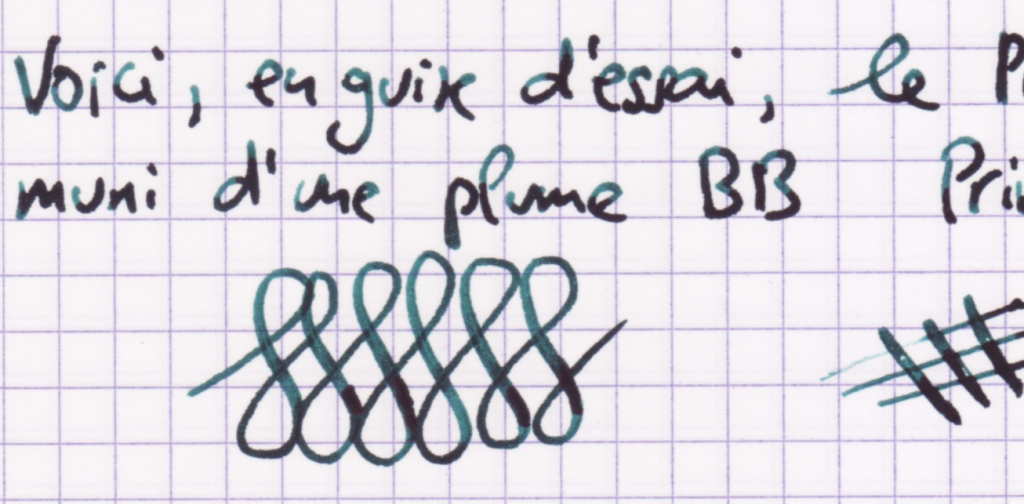 Voici, en guise d'essai, le
muni d'une plume BB